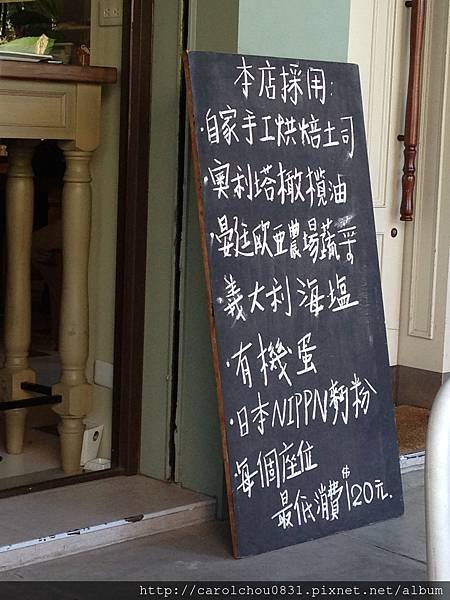 本店採用:
·自家手工烘焙土司
·奧利塔橄欖油
·晏廷歐亞農場蔬菜
義大利海塩
·有機蛋
·日本NIPPN麵粉
每個座位
最低消費$120元.
http://carolchou0831.pixnet.net/album